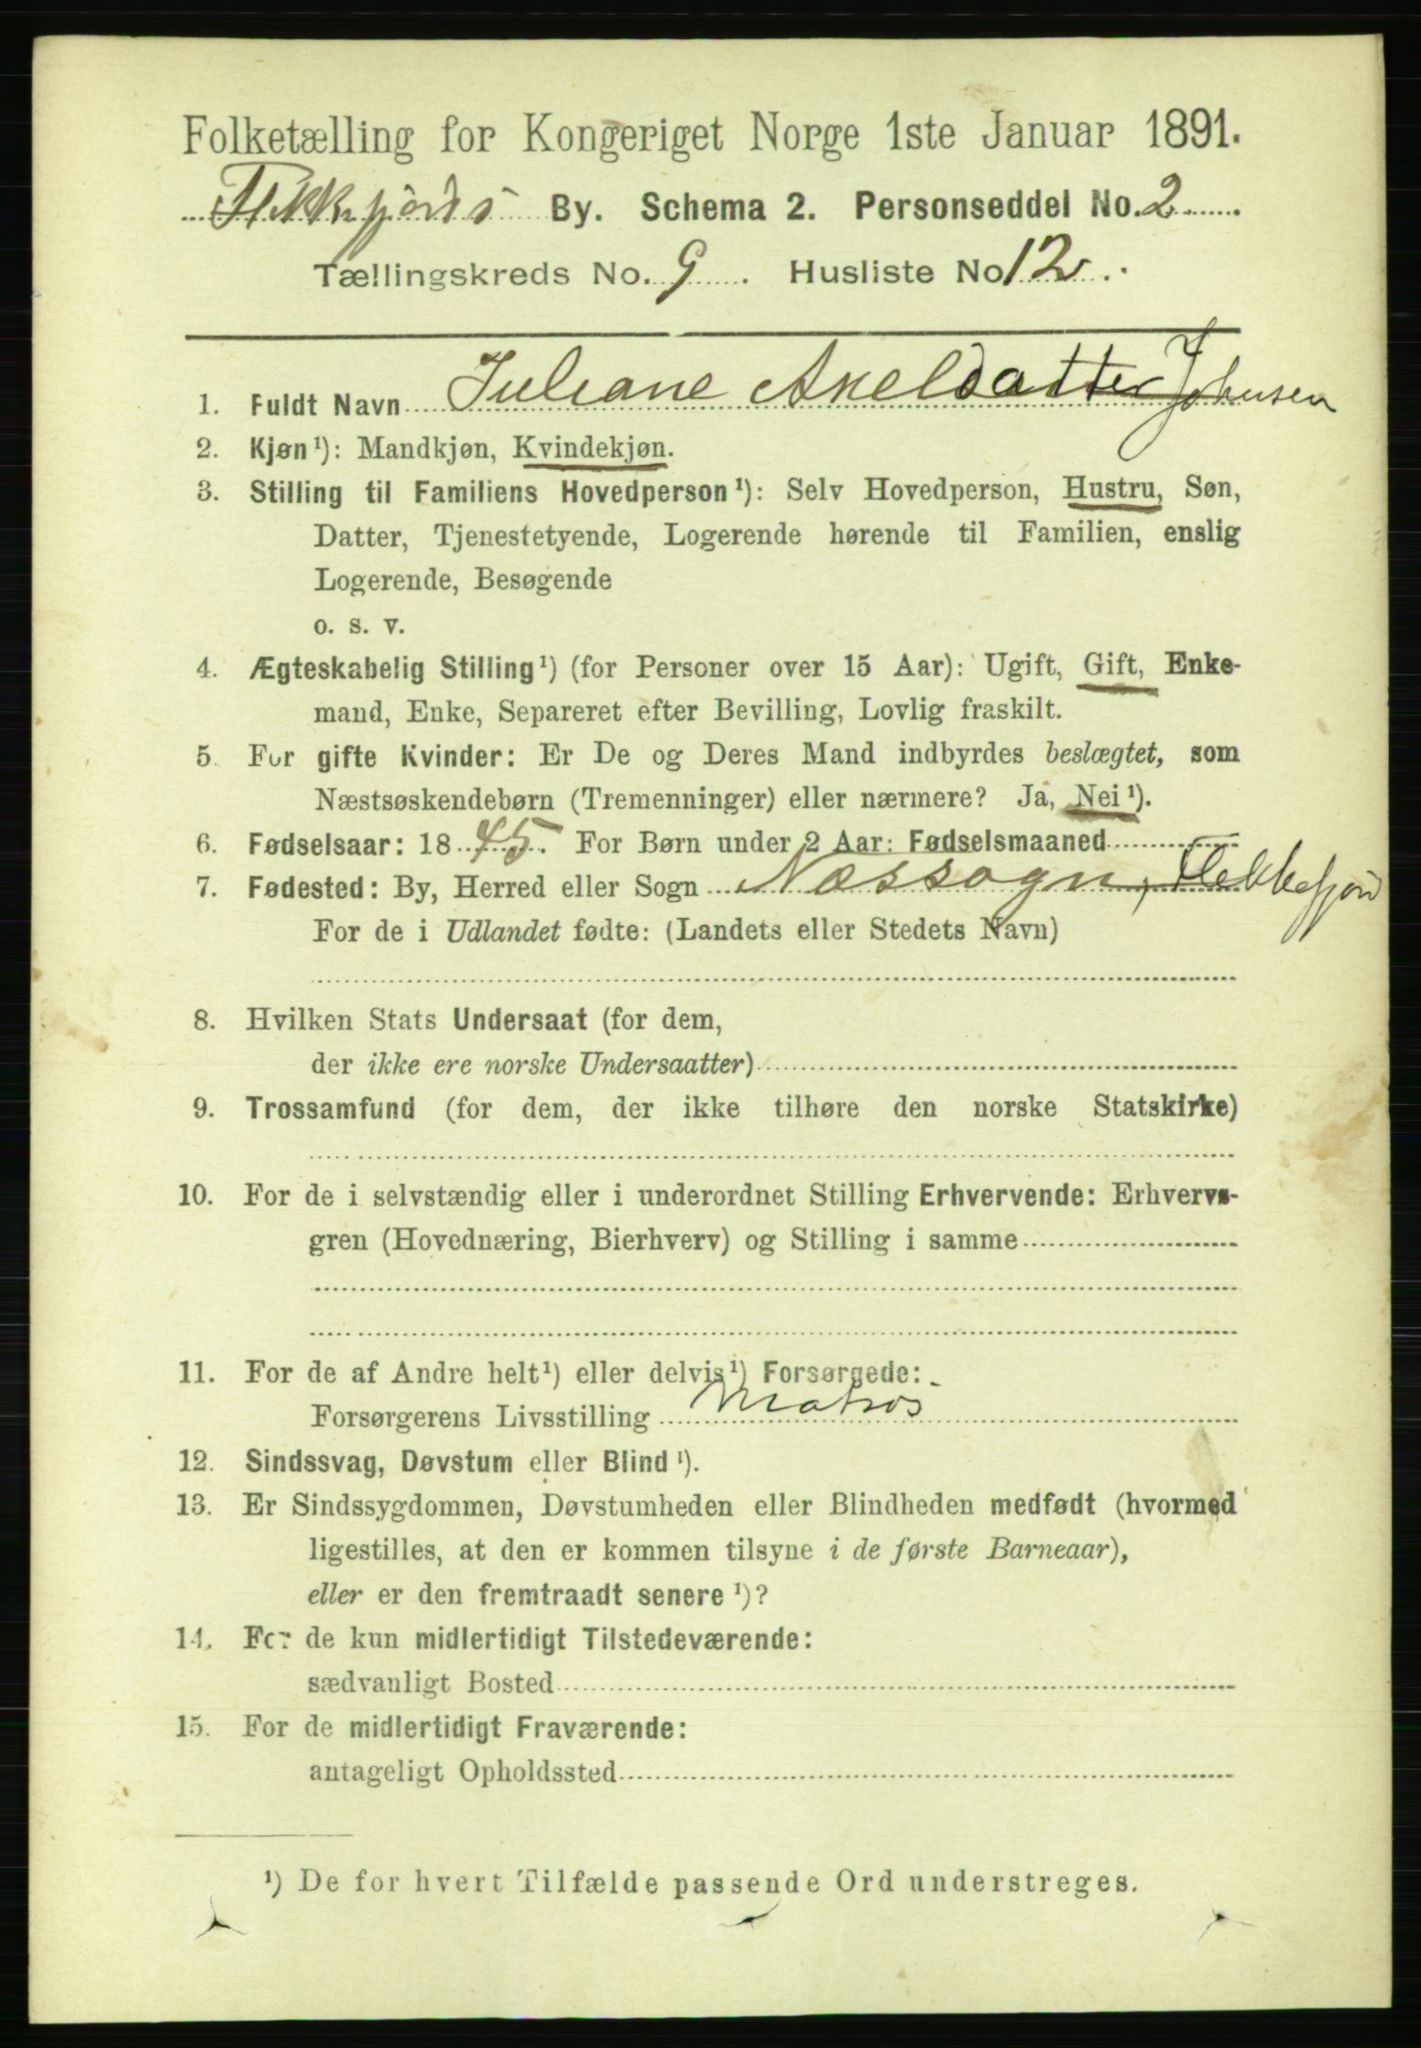 Folketælling for Kongeriget Norge 1ste Januar 1891.
Flekkefjords By. Schema 2. Personseddel No. 2
Tællingskreds No. 9. Husliste No 12.
1. Fuldt Navn Juliane Axeldatter Johnsen
2. Kjøn ¹): Mandkjøn, Kvindekjøn.
3. Stilling til Familiens Hovedperson ¹): Selv Hovedperson, Hustru, Søn,
Datter, Tjenestetyende, Logerende hørende til Familien, enslig
Logerende, Besøgende
o. s. v.
4. Ægteskabelig Stilling ¹) (for Personer over 15 Aar): Ugift, Gift, Enke-
mand, Enke, Separeret efter Bevilling, Lovlig fraskilt.
5. For gifte Kvinder: Er De og Deres Mand indbyrdes beslægtet, som
Næstsøskendebørn (Tremenninger) eller nærmere? Ja, Nei ¹).
6. Fødselsaar: 1845. For Børn under 2 Aar: Fødselsmaaned
7. Fødested: By, Herred eller Sogn Næssogn, Flekkefjord
For de i Udlandet fødte: (Landets eller Stedets Navn)
8. Hvilken Stats Undersaat (for dem,
der ikke ere norske Undersaatter)
9. Trossamfund (for dem, der ikke tilhøre den norske Statskirke)
10. For de i selvstændig eller i underordnet Stilling Erhvervende: Erhvervs-
gren (Hovednæring, Bierhverv) og Stilling i samme
11. For de af Andre helt ¹) eller delvis ¹) Forsørgede:
Forsørgerens Livsstilling Matros
12. Sindssvag, Døvstum eller Blind ¹).
13. Er Sindssygdommen, Døvstumheden eller Blindheden medfødt (hvormed
ligestilles, at den er kommen tilsyne i de første Barneaar),
eller er den fremtraadt senere ¹)?
14. For de kun midlertidigt Tilstedeværende:
sædvanligt Bosted
15. For de midlertidigt Fraværende:
antageligt Opholdssted
¹) De for hvert Tilfælde passende Ord understreges.